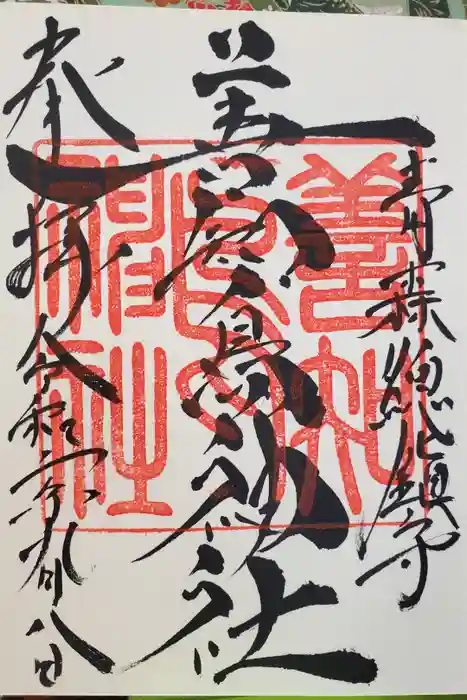 青森総鎮守
善知鳥神社
奉拝
令和 年九月八日
善知鳥神社